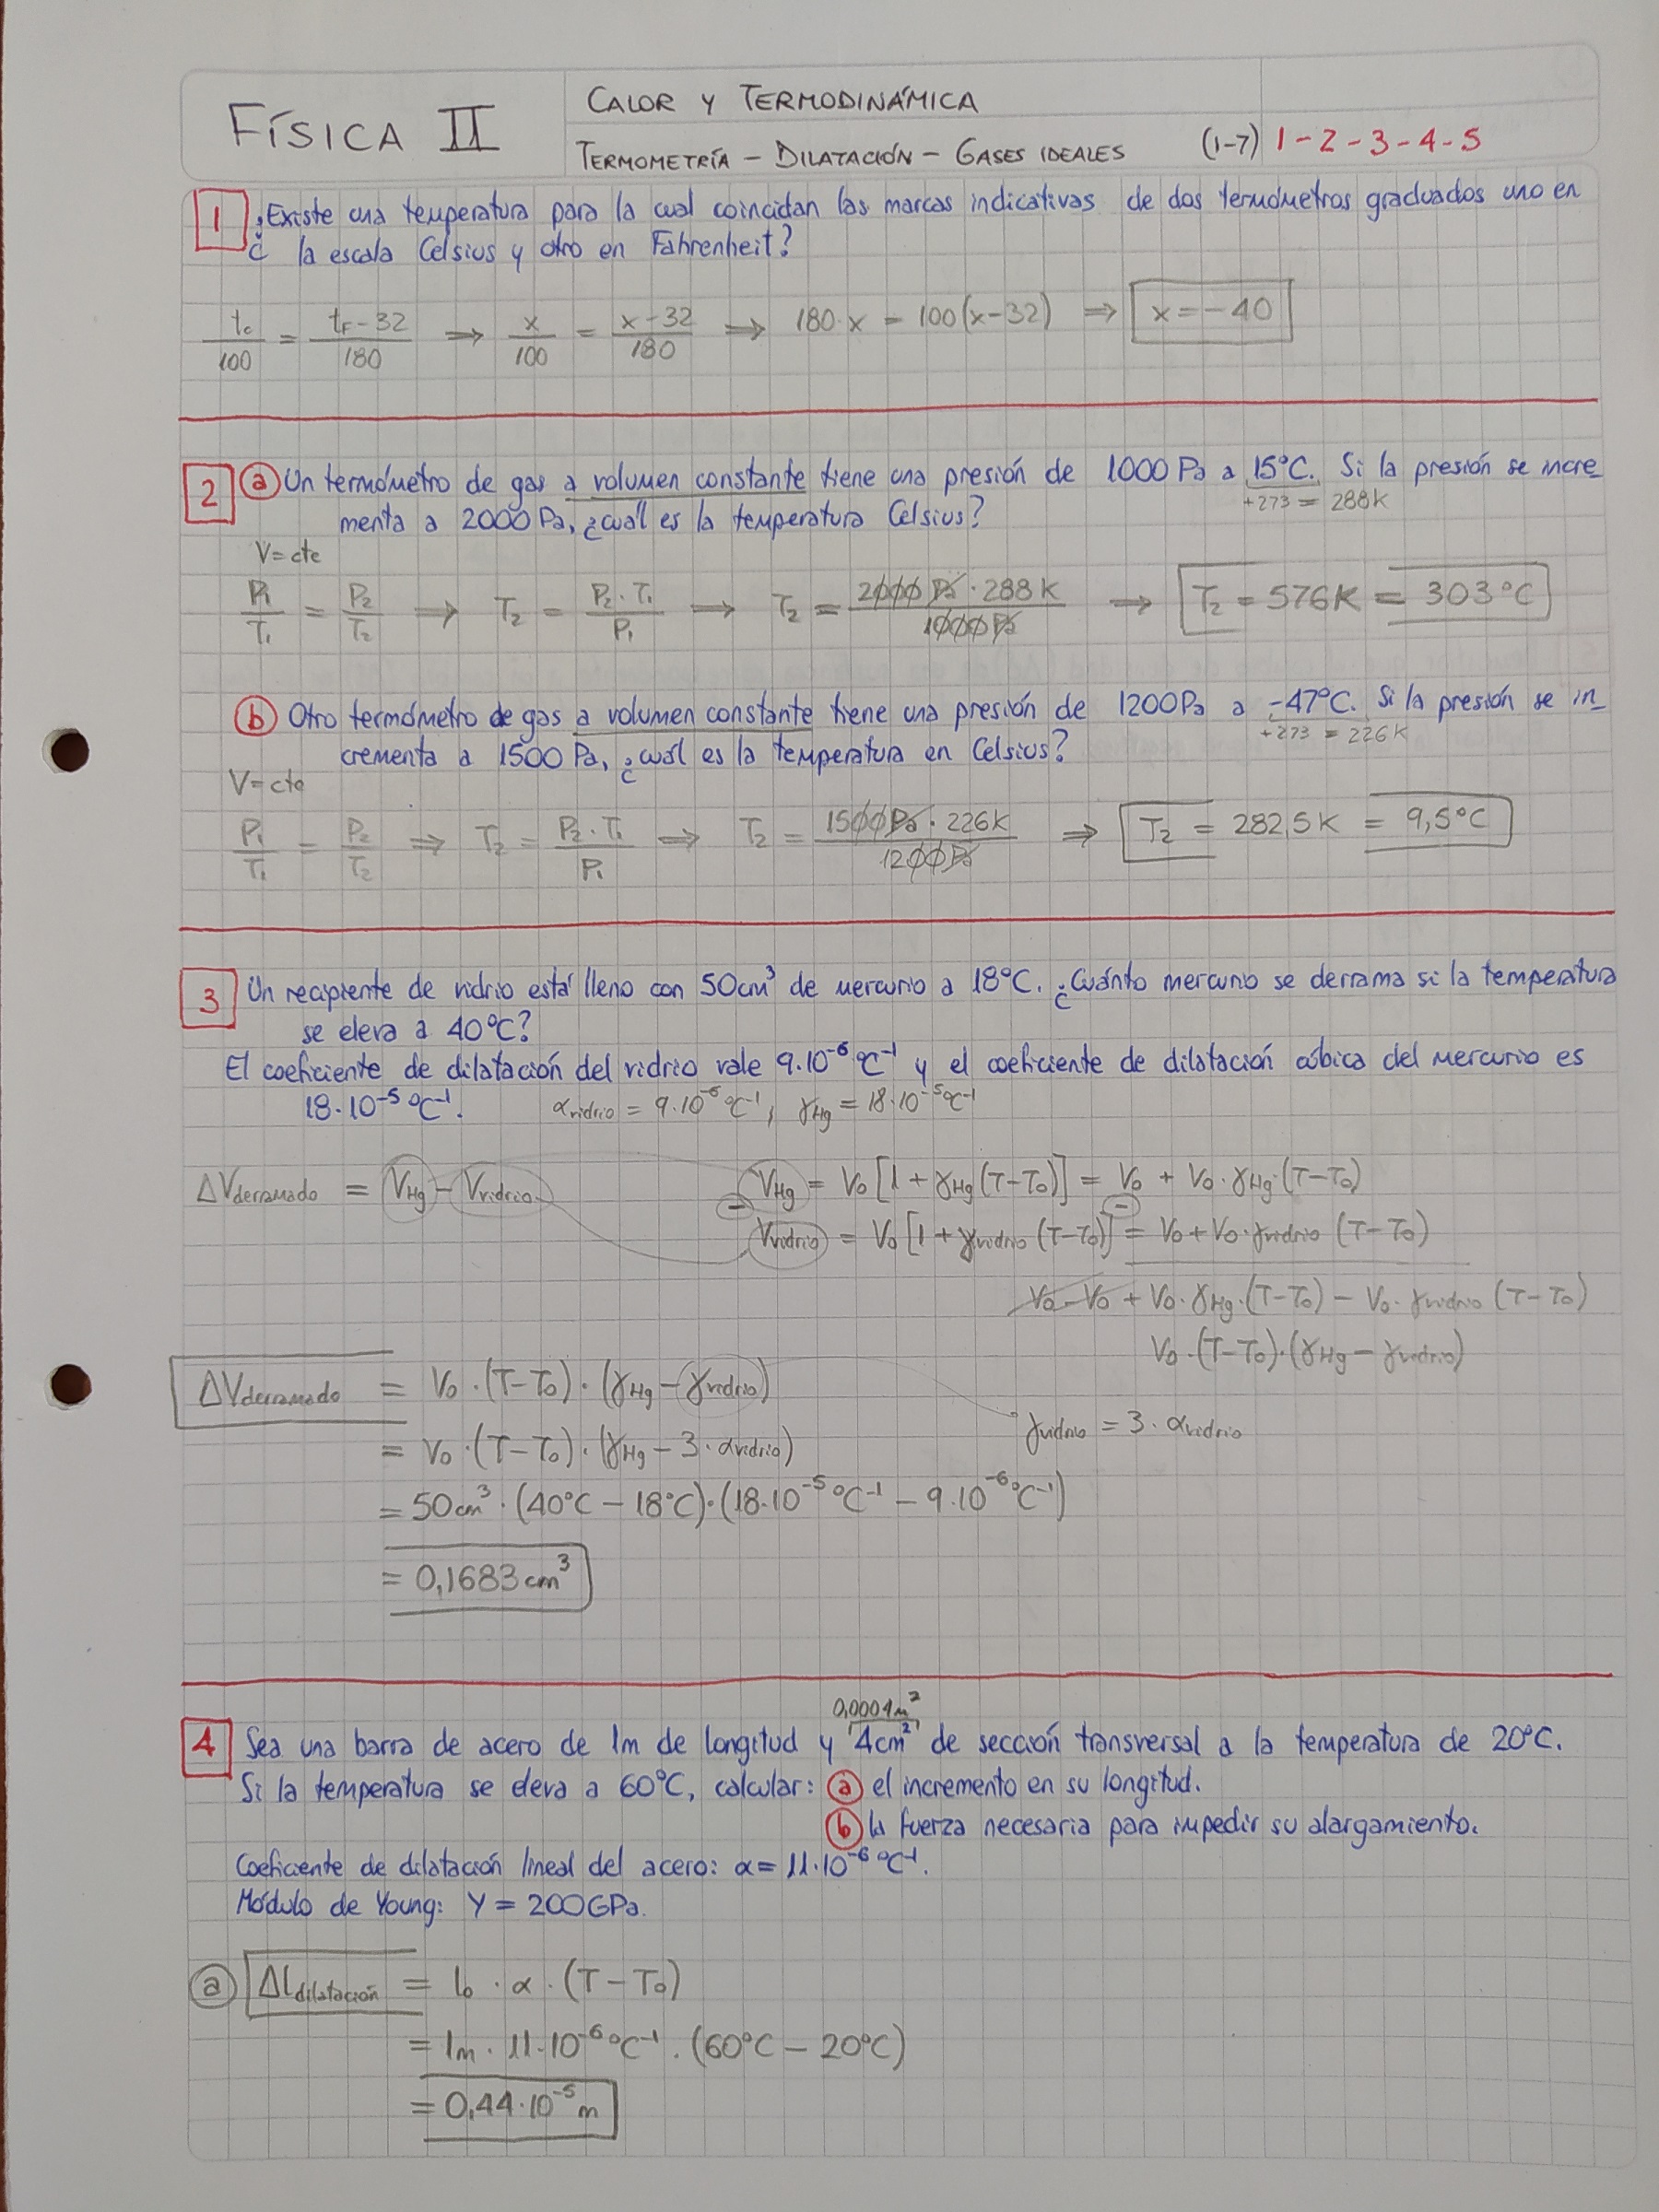 FÍSICA II
CALOR Y TERMODINÁMICA
TERMOMETRÍA - DILATACIÓN - GASES IDEALES (1-7) 1-2-3-4-5
1 ¿Existe una temperatura para la cual coincidan las marcas indicativas de dos termómetros graduados uno en
la escala Celsius y otro en Fahrenheit?
tc/100 = (tF-32)/180 ⟹ x/100 = (x-32)/180 ⟹ 180·x = 100(x-32) ⟹ x = -40
2 a Un termómetro de gas a volumen constante tiene una presión de 1000 Pa a 15°C. Si la presión se incre
+273 = 288K
menta a 2000 Pa, ¿cuál es la temperatura Celsius?
V=cte
P1/T1 = P2/T2 ⟹ T2 = P2·T1/P1 ⟹ T2 = 2000 Pa·288K/1000Pa ⟹ T2 = 576K = 303°C
b Otro termómetro de gas a volumen constante tiene una presión de 1200Pa a -47°C. Si la presión se in_
+273 = 226K
crementa a 1500 Pa, ¿cuál es la temperatura en Celsius?
V=cte
P1/T1 = P2/T2 ⟹ T2 = P2·T1/P1 ⟹ T2 = 1500Pa·226K/1200Pa ⟹ T2 = 282,5K = 9,5°C
3 Un recipiente de vidrio está lleno con 50cm³ de mercurio a 18°C. ¿Cuánto mercurio se derrama si la temperatura
se eleva a 40°C?
El coeficiente de dilatación del vidrio vale 9·10⁻⁶ °C⁻¹ y el coeficiente de dilatación cúbica del mercurio es
18·10⁻⁵ °C⁻¹. αvidrio = 9·10⁻⁶ °C⁻¹, γHg = 18·10⁻⁵ °C⁻¹
ΔVderramado = VHg - Vvidrio
VHg = V0 [1 + γHg (T-T0)] = V0 + V0·γHg·(T-T0)
- -
Vvidrio = V0 [1 + γvidrio (T-T0)] = V0 + V0·γvidrio (T-T0)
V0 - V0 + V0·γHg·(T-T0) - V0·γvidrio (T-T0)
V0·(T-T0)·(γHg - γvidrio)
ΔVderramado = V0·(T-T0)·(γHg - γvidrio)
γvidrio = 3·αvidrio
= V0·(T-T0)·(γHg - 3·αvidrio)
= 50cm³·(40°C - 18°C)·(18·10⁻⁵ °C⁻¹ - 9·10⁻⁶ °C⁻¹)
= 0,1683 cm³
0,0004m²
4 Sea una barra de acero de 1m de longitud y 4cm² de sección transversal a la temperatura de 20°C.
Si la temperatura se eleva a 60°C, calcular: a el incremento en su longitud.
b la fuerza necesaria para impedir su alargamiento.
Coeficiente de dilatación lineal del acero: α = 11·10⁻⁶ °C⁻¹.
Módulo de Young: Y = 200GPa.
a ΔLdilatación = l0·α·(T-T0)
= 1m·11·10⁻⁶ °C⁻¹·(60°C - 20°C)
= 0,44·10⁻⁵ m